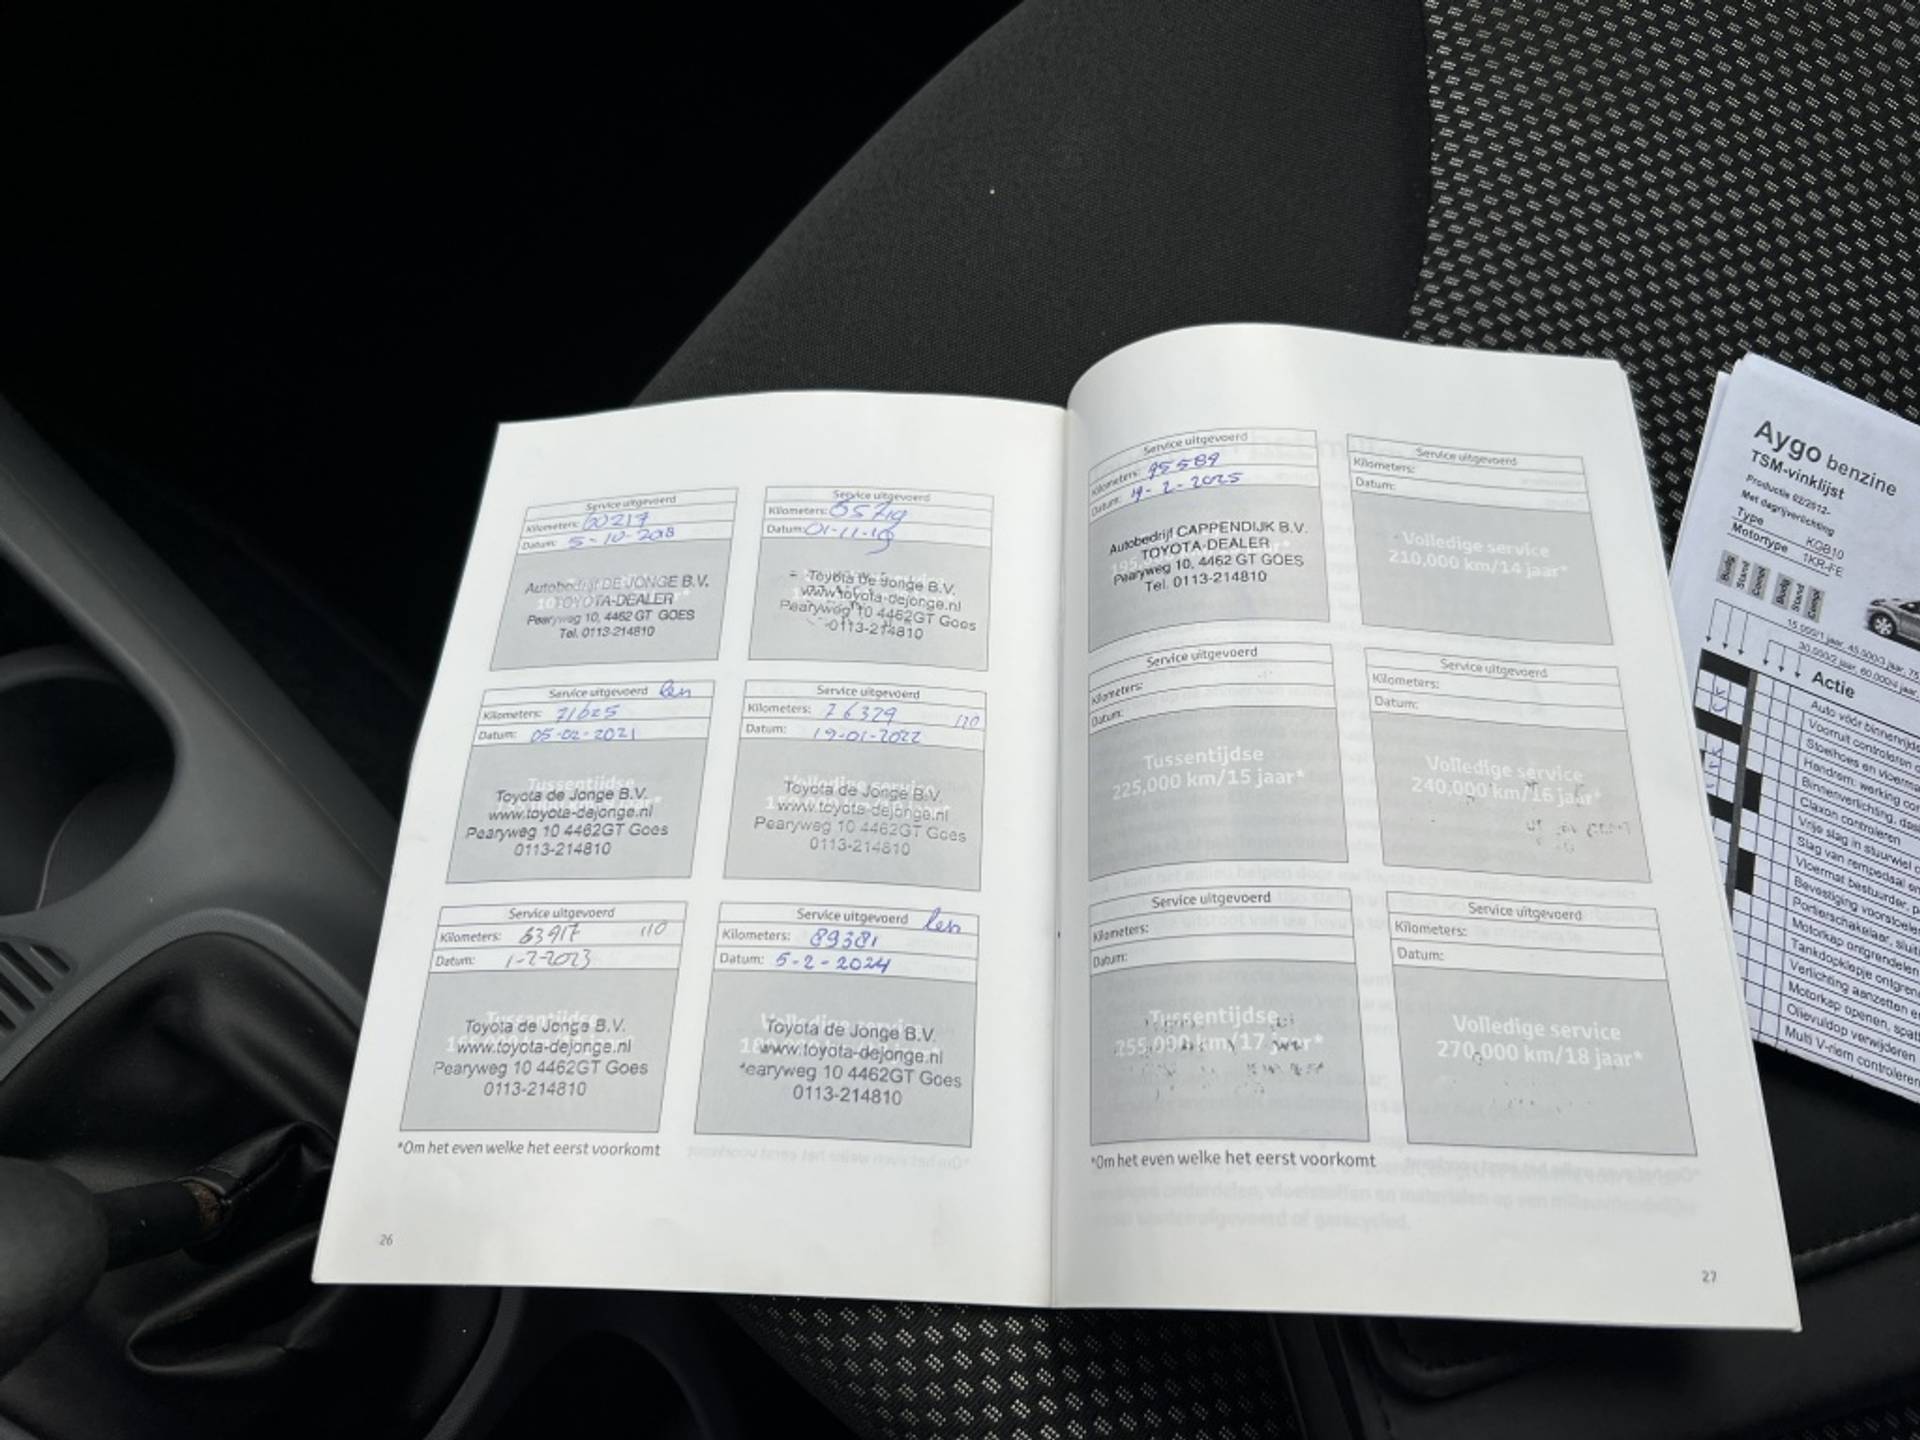 Service uitgevoerd
Kilometers: 60217
Datum: 5-10-2018
Autobedrijf DE JONGE B.V.
TOYOTA-DEALER
Pearyweg 10, 4462 GT GOES
Tel. 0113-214810
Service uitgevoerd
Kilometers: 65719
Datum: 01-11-19
Toyota de Jonge B.V.
www.toyota-dejonge.nl
Pearyweg 10 4462GT Goes
0113-214810
Service uitgevoerd
Kilometers: 71625
Datum: 05-02-2021
Tussentijdse
Toyota de Jonge B.V.
www.toyota-dejonge.nl
Pearyweg 10 4462GT Goes
0113-214810
Service uitgevoerd
Kilometers: 76379
Datum: 19-01-2022
Volledige service
Toyota de Jonge B.V.
www.toyota-dejonge.nl
Pearyweg 10 4462GT Goes
0113-214810
Service uitgevoerd
Kilometers: 83917
Datum: 1-2-2023
Tussentijdse
Toyota de Jonge B.V.
www.toyota-dejonge.nl
Pearyweg 10 4462GT Goes
0113-214810
Service uitgevoerd
Kilometers: 89381
Datum: 5-2-2024
Volledige service
Toyota de Jonge B.V.
www.toyota-dejonge.nl
Pearyweg 10 4462GT Goes
0113-214810
*Om het even welke het eerst voorkomt
26
Service uitgevoerd
Kilometers: 95589
Datum: 19-2-2025
Autobedrijf CAPPENDIJK B.V.
TOYOTA-DEALER
Pearyweg 10, 4462 GT GOES
Tel. 0113-214810
Service uitgevoerd
Kilometers:
Datum:
Volledige service
210,000 km/14 jaar*
Service uitgevoerd
Kilometers:
Datum:
Tussentijdse
225,000 km/15 jaar*
Service uitgevoerd
Kilometers:
Datum:
Volledige service
240,000 km/16 jaar*
Service uitgevoerd
Kilometers:
Datum:
Tussentijdse
255,000 km/17 jaar*
Service uitgevoerd
Kilometers:
Datum:
Volledige service
270,000 km/18 jaar*
*Om het even welke het eerst voorkomt
27
Aygo benzine
TSM-vinklijst
Productie 02/2012-
Met dagrijverlichting
Type KGB10
Motortype 1KR-FE
Budg
Stand
Compl
Budg
Stand
Compl
15.000/1 jaar, 45.000/3 jaar, 75
30.000/2 jaar, 60.000/4 jaar
Actie
Auto vóór binnenrijden
Voorruit controleren
Stoelhoes en vloerma
Handrem: werking con
Binnenverlichting, das
Claxon controleren
Vrije slag in stuurwiel
Slag van rempedaal en
Vloermat bestuurder,
Bevestiging voorstoelen
Portierschakelaar, sluit
Motorkap ontgrendelen
Tankdopklepje ontgren
Verlichting aanzetten e
Motorkap openen, spat
Olievuldop verwijderen
Multi V-riem controleren